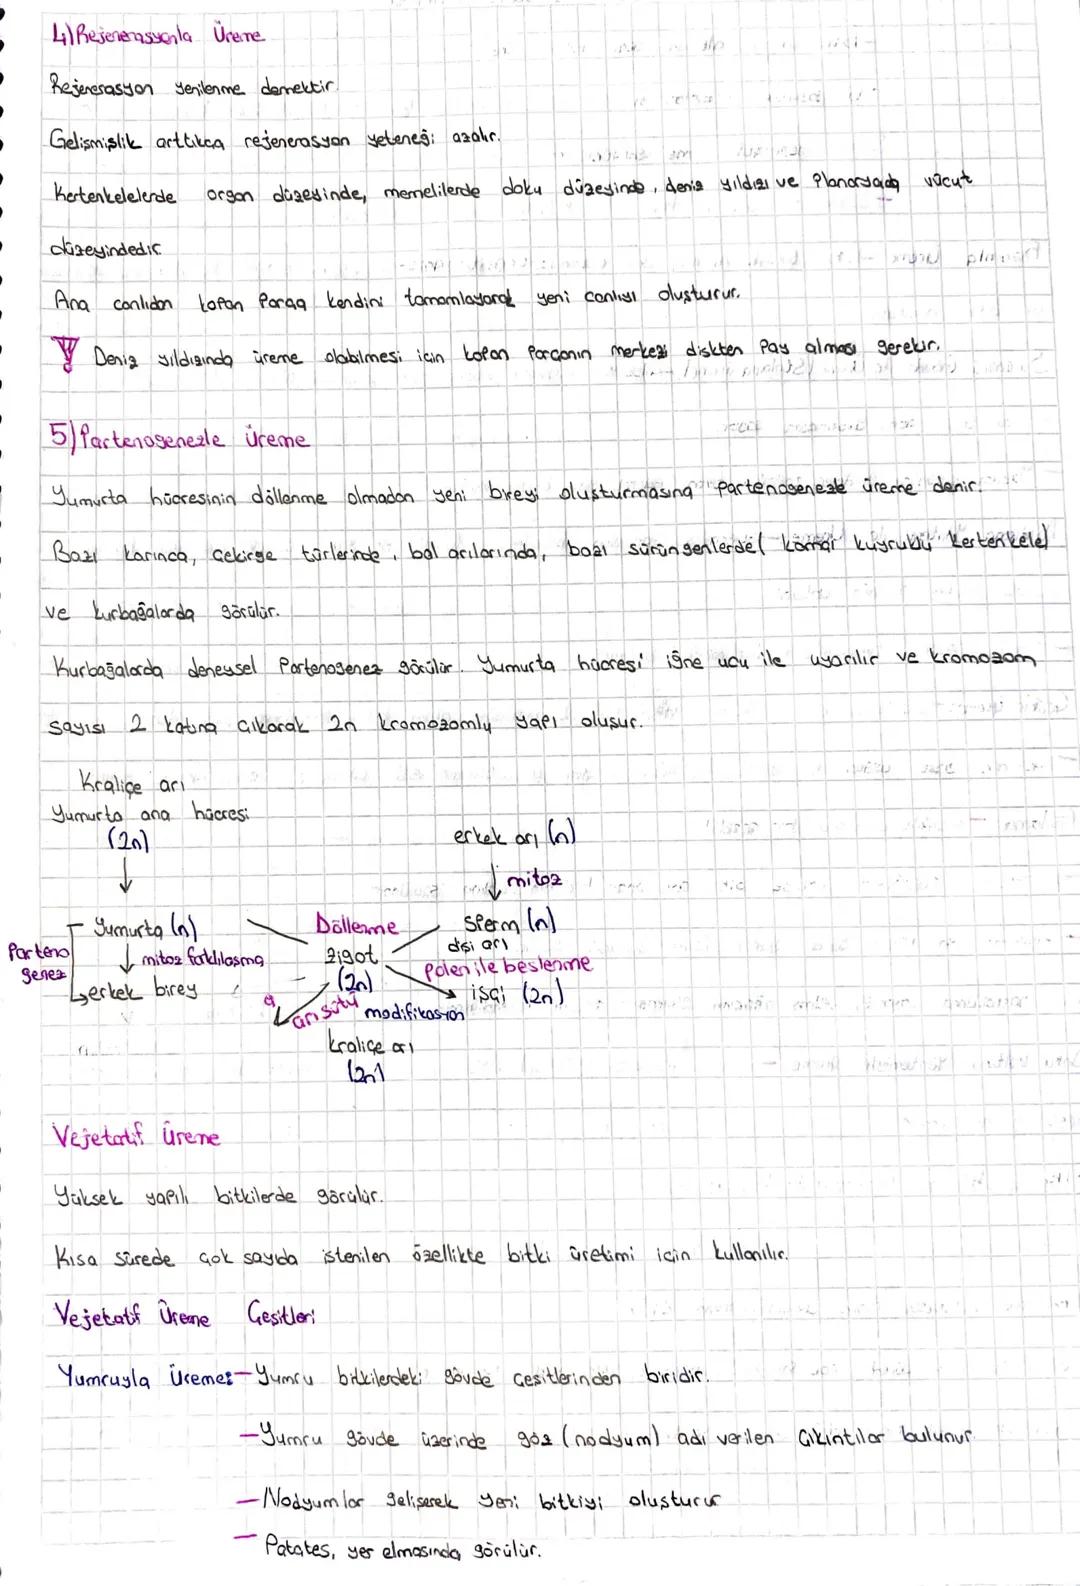 4) Rejenerasyonla Üreme
Rejenerasyon yenilenme demektir.
Gelişmişlik arttıkça rejenerasyon yeteneği azalır.
Kertenkelelerde organ düzeyinde, memelilerde doku düzeyinde, deniz yıldızı ve Planaryada vücut
düzeyindedir.
Ana canlıdan kopan Parça kendini tamamlayarak yeni canlıyı oluşturur.
Deniz yıldızında üreme olabilmesi için kopan Parçanın merkezi diskten Pay alması gerekir.
5) Partenogenezle Üreme
Yumurta hücresinin döllenme olmadan yeni bireyi oluşturmasına Partenogenezle üreme denir.
Bazı karınca, çekirge türlerinde, bal arılarında, bazı sürüngenlerde( kamçı kuyruklu kertenkele)
ve kurbağalarda görülür.
Kurbağalarda deneysel Partenogenez görülür. Yumurta hücresi iğne ucu ile uyarılır ve kromozom
sayısı 2 katına çıkarak 2n kromozomlu yapı oluşur.
Kraliçe arı
Yumurta ana hücresi
(2n)
erkek arı (n)
mitoz
Yumurta (n)
Döllenme
Sperm (n)
Parteno
genez
mitoz farklılaşma
zigot
(2n)
dişi arı
Polen ile beslenme
işçi (2n)
erkek birey
arı sütü
modifikasyon
kraliçe arı
(2n)
Vejetatif Üreme
Yüksek yapılı bitkilerde görülür.
Kısa sürede çok sayıda istenilen özellikte bitki üretimi için kullanılır.
Vejetatif Üreme Çeşitleri
Yumruyla Üreme:-Yumru bitkilerdeki gövde çeşitlerinden biridir.
-Yumru gövde üzerinde göz (nodyum) adı verilen çıkıntılar bulunur
-Nodyumlar gelişerek yeni bitkiyi oluşturur
- Patates, yer elmasında görülür.